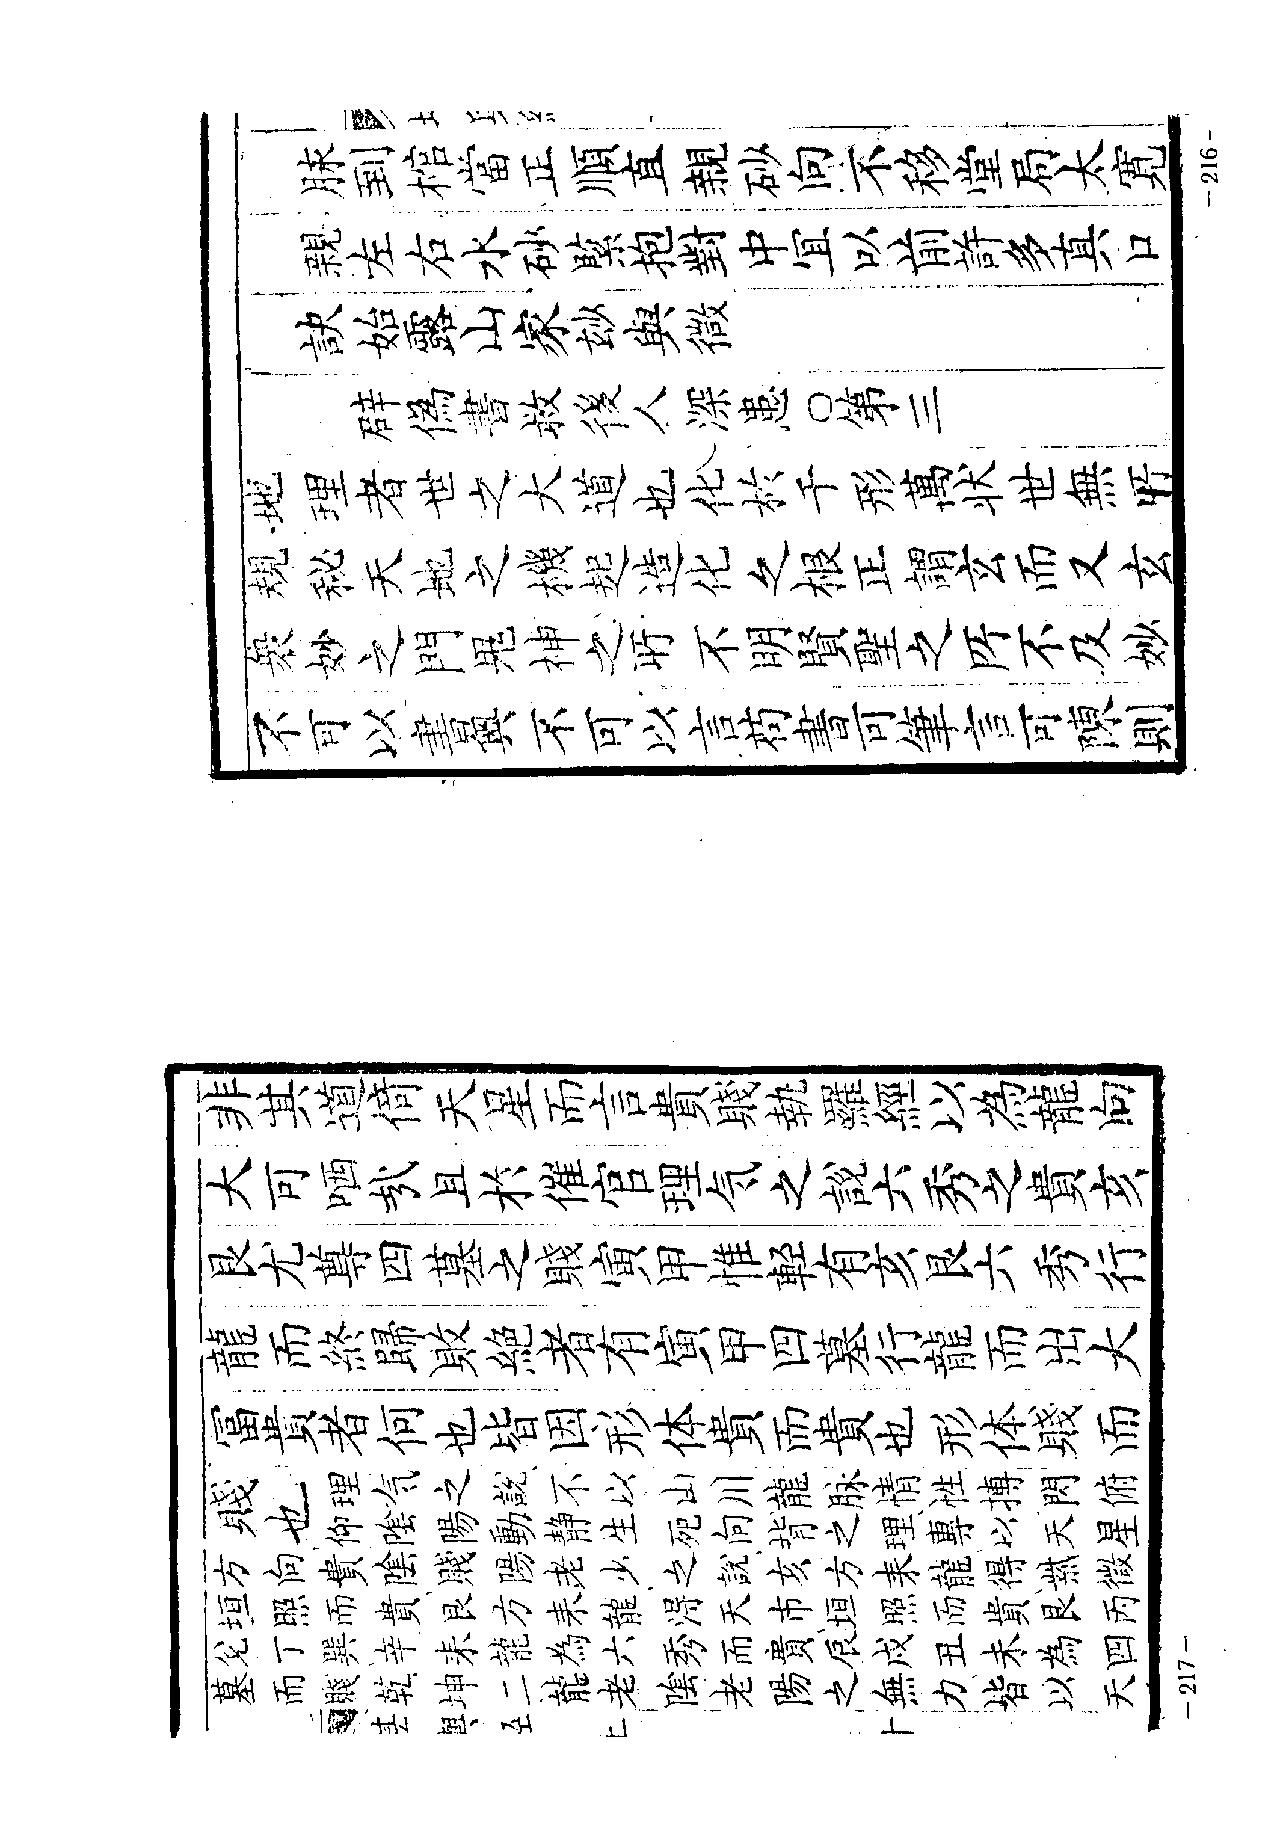 脉到棺當正順直親砂向不移堂局太寬
親左右水砂䕃抱對中宜以前許多真口
訣始露山家玅與微
辟偽書救後人深患〇第三
地理者世之大道也化於千形萬狀世無所
規秘天地之機起造化之根正謂玄而又玄
衆妙之門鬼神之所不明賢聖之所不及妙
不可以書與不可以言苟書可筆言可陳則
-216-
非其道倚天星而言貴賤執羅經以為龍向
大可哂哉且於催官理気之說六秀之貴亥
艮尤尊四墓之賤寅甲惟輕有亥艮六秀行
龍而終歸敗絕者有寅甲四墓行龍而出大
富貴者何也皆因形体貴而貴也形体賤而
賤也理気之說不以山川龍脉情性搏閃俯
仰陰陽動静生死向背之理專以天星
方向貴陰賤陽老少之說亥方来龍得微
垣照而貴艮方来龍淂天市垣照而貴艮丙
兊丁巽辛来龍為六秀而貴辰戍丑未為四
墓而賤乾坤二龍老陰老陽之無力皆以天
-217-